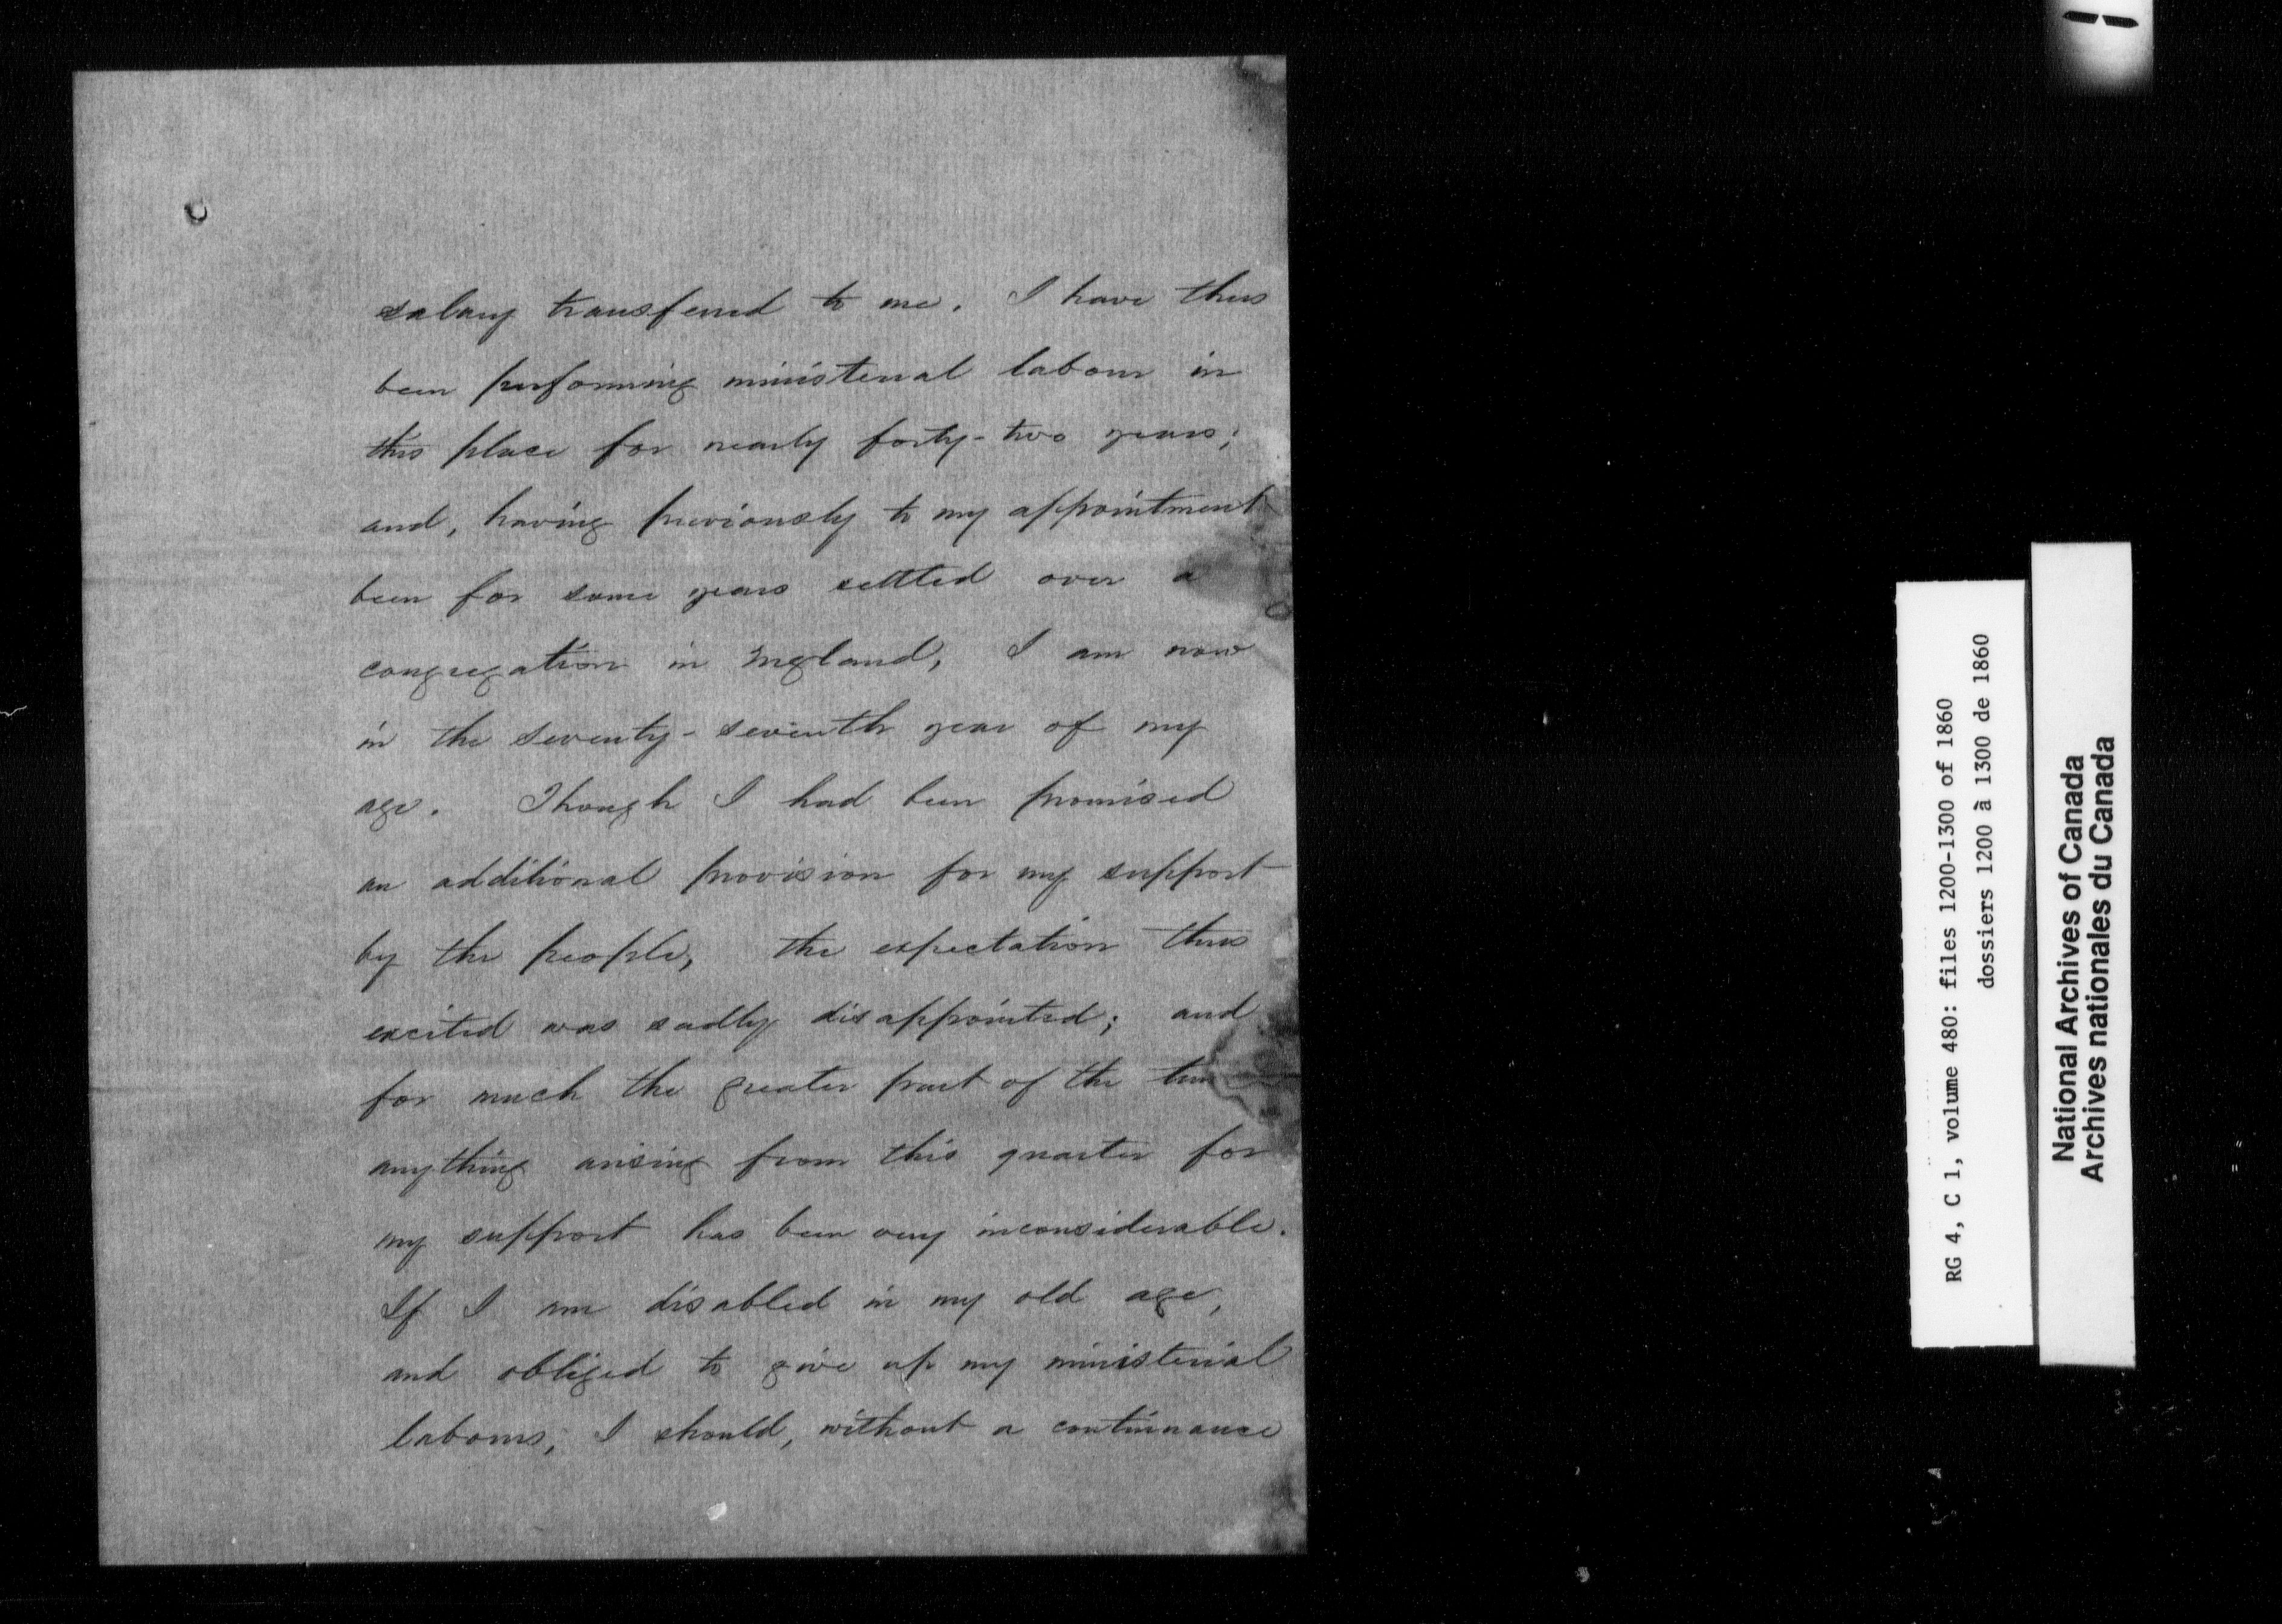 salary transferred to me. I have thus
been performing ministerial labour in
this place for nearly forty-two years;
and, having previously to my appointment
been for some years settled over a
congregation in England, I am now
in the seventy-seventh year of my
age. Though I had been promised
an additional provision for my support
by the people, the expectation thus
excited was sadly disappointed; and
for much the greater part of the time
anything arising from this quarter for
my support has been very inconsiderable.
If I am disabled in my old age,
and obliged to give up my ministerial
labours, I should, without a continuance
RG 4, C 1, volume 480: files 1200-1300 of 1860
dossiers 1200 à 1300 de 1860
National Archives of Canada
Archives nationales du Canada